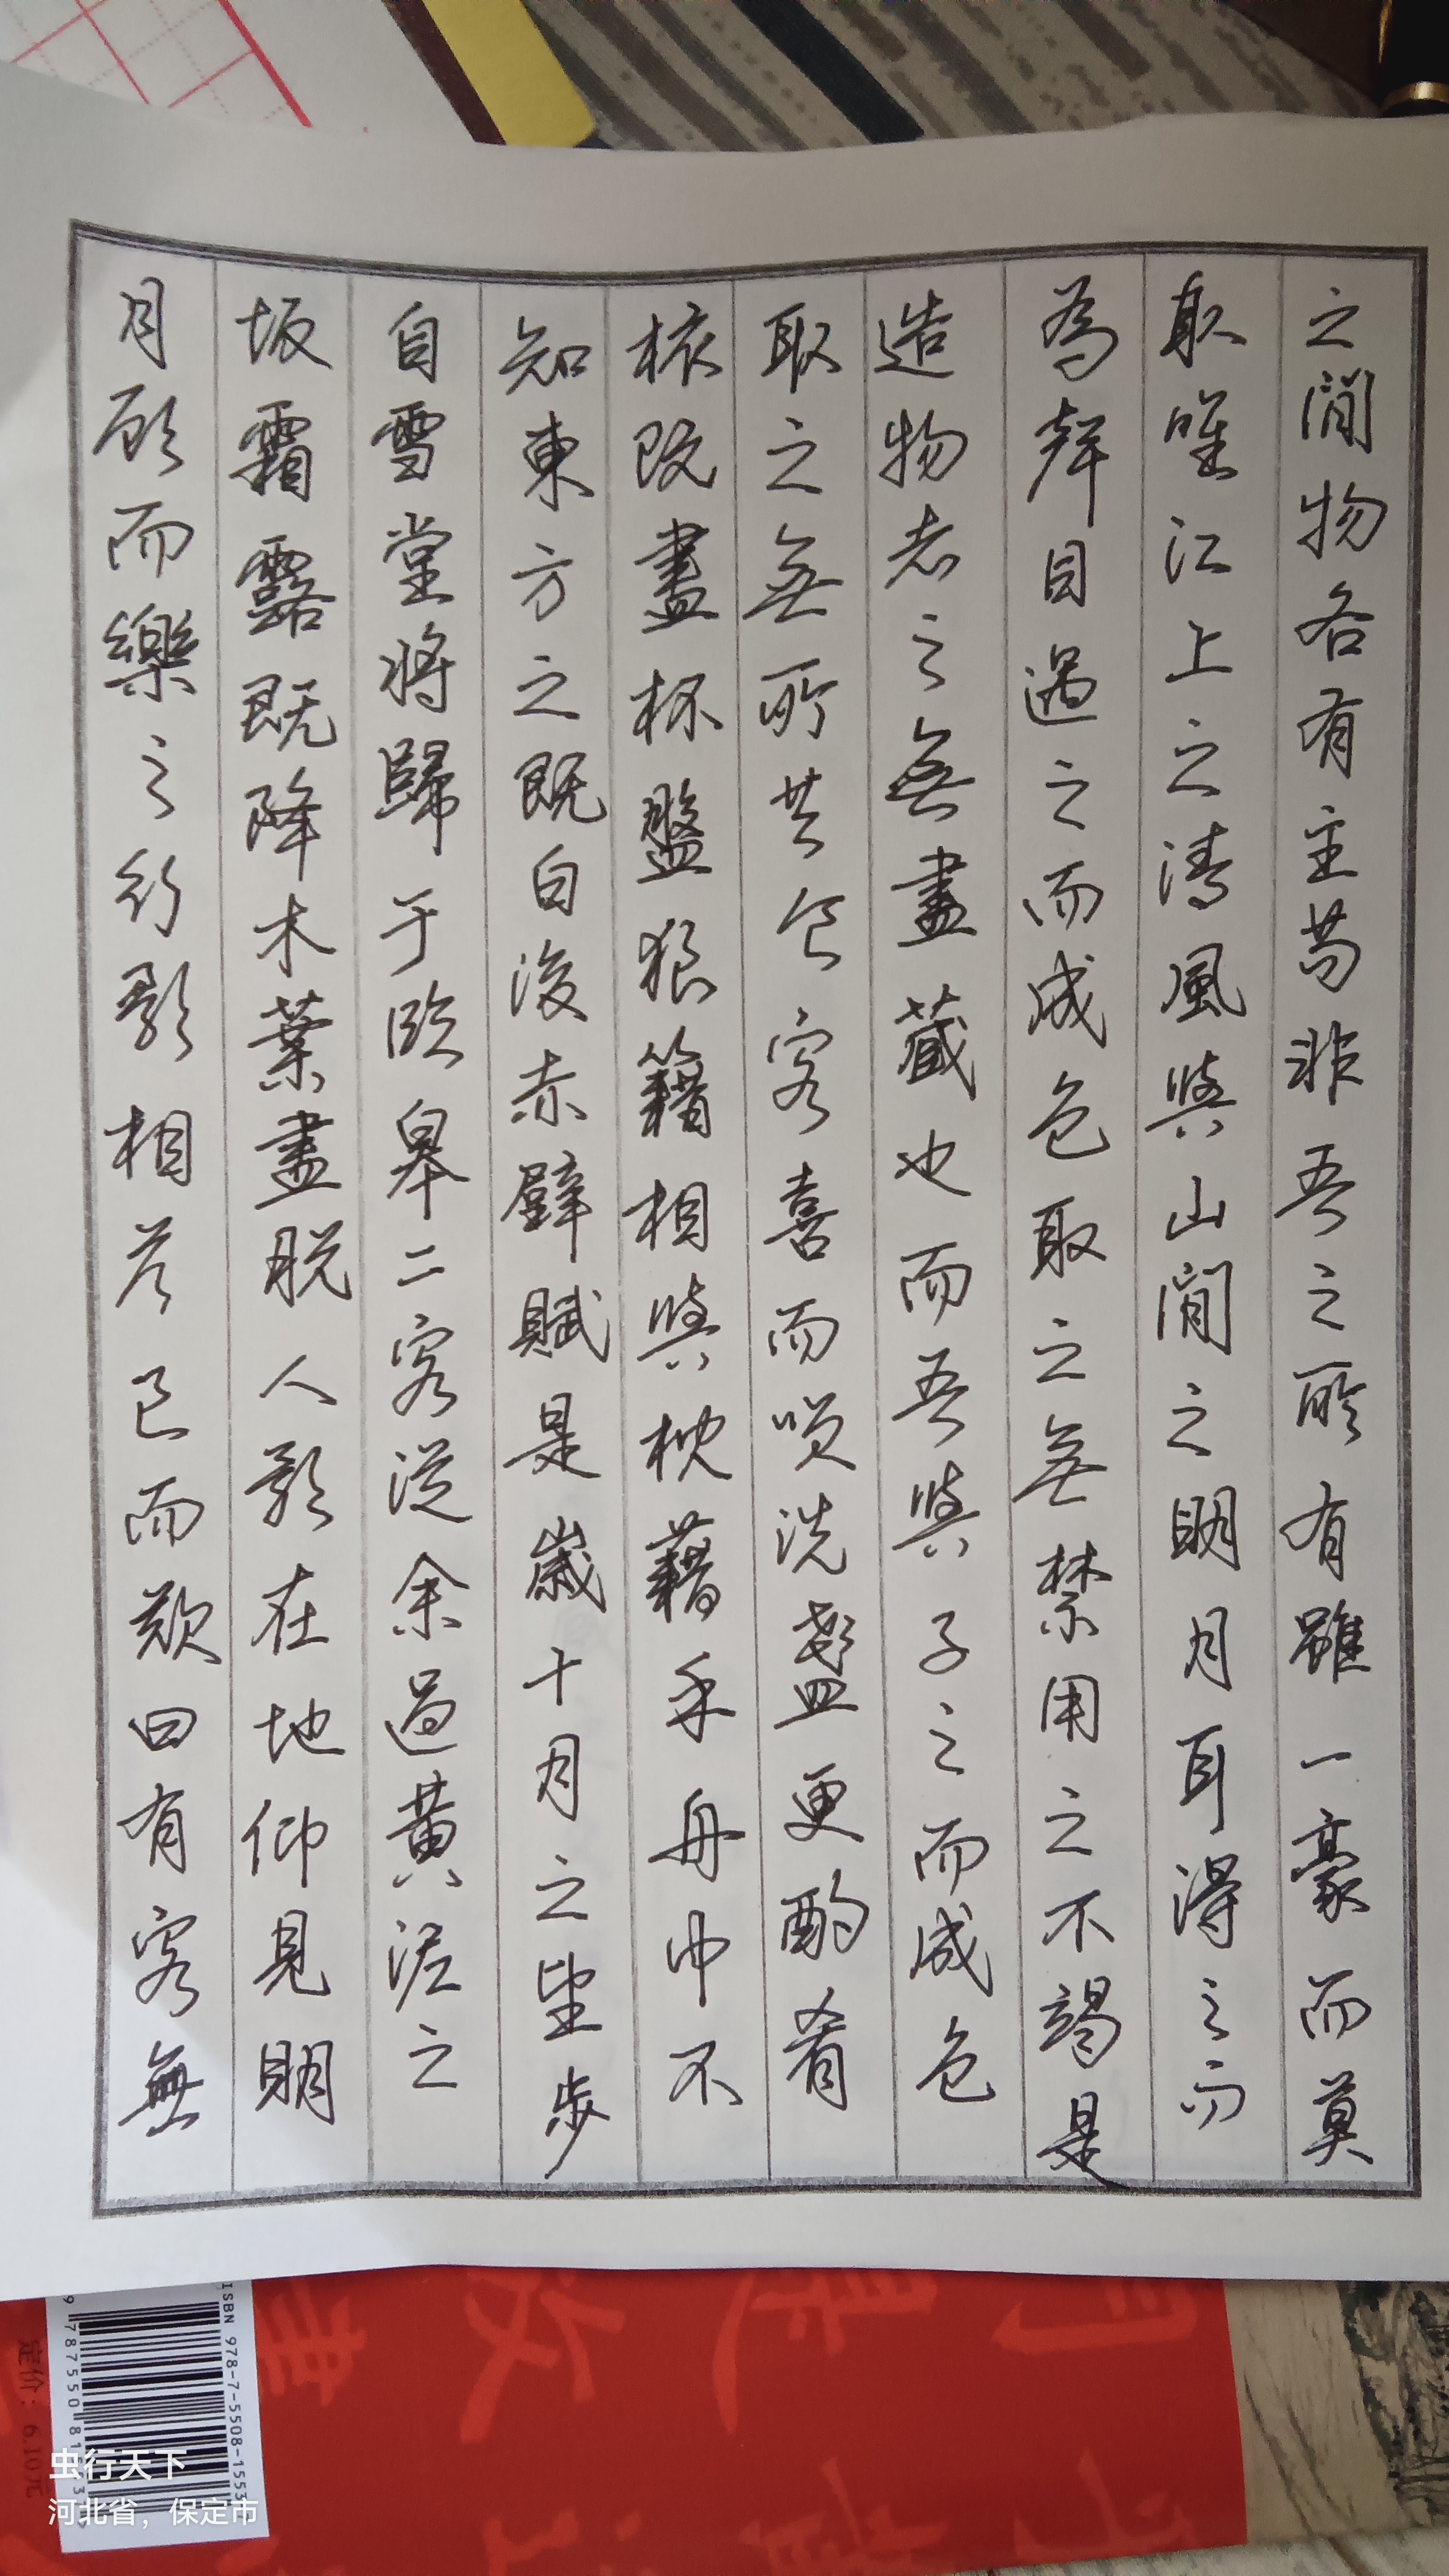 之間物各有主苟非吾之所有雖一豪而莫
取唯江上之清風與山間之明月耳得之而
為聲目遇之而成色取之無禁用之不竭是
造物者之無盡藏也而吾與子之而成色
取之無所共食客喜而笑洗盞更酌肴
核既盡杯盤狼籍相與枕藉乎舟中不
知東方之既白後赤壁賦是歲十月之望步
自雪堂將歸于臨皋二客從余過黃泥之
坂霜露既降木葉盡脫人影在地仰見明
月顧而樂之行歌相答已而歎曰有客無
ISBN 978-7-5508-1555-
定价：
虫行天下
河北省，保定市